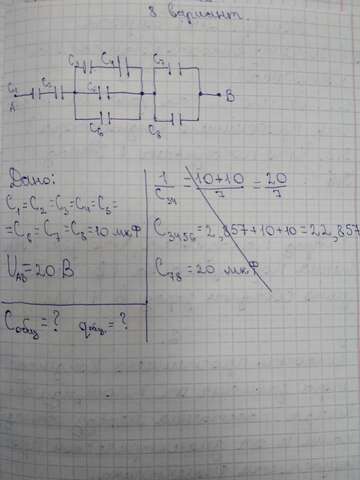 8 вариант.
C3 C4 C7
C1 C2 C5 B
A
C6 C8
Дано:
C1=C2=C3=C4=C5=
=C6=C7=C8=10 мкФ
UAB=20 В
Cобщ=? qобщ=?
1/C34 = 10+10/7 = 20/7
C3456=2,857+10+10=22,857
C78=20 мкФ